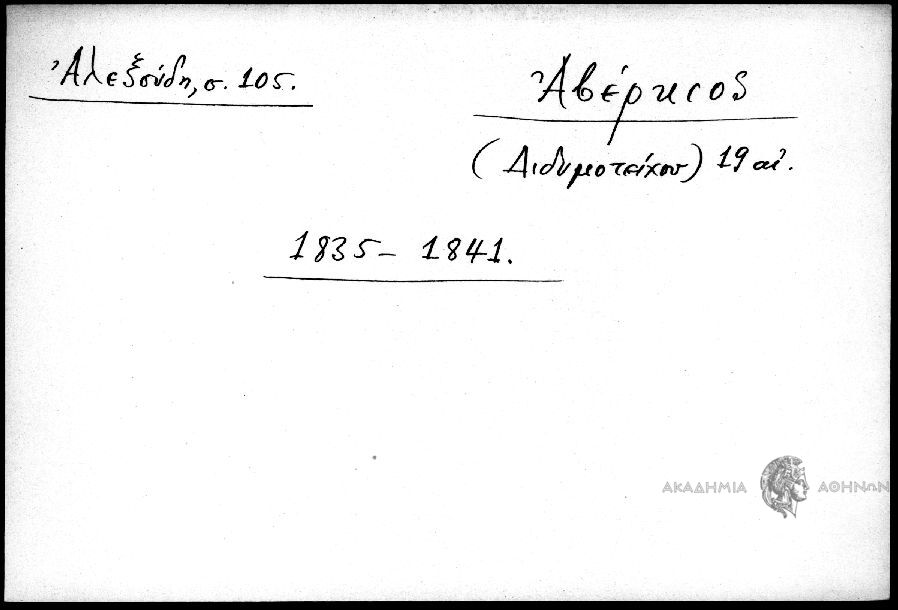 Ἀλεξούδη, σ. 105.
Ἀβέρκιος
(Διδυμοτείχου) 19 αἰ.
1835 – 1841.
ΑΚΑΔΗΜΙΑ ΑΘΗΝΩΝ